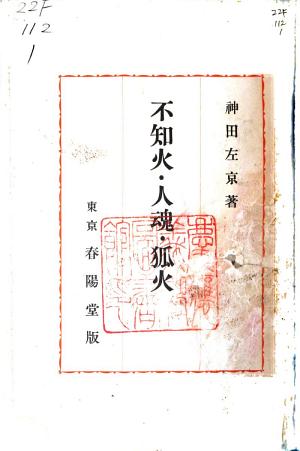 22F
112
1
22F
112
1
神田左京著
不知火・人魂・狐火
東京 春陽堂版